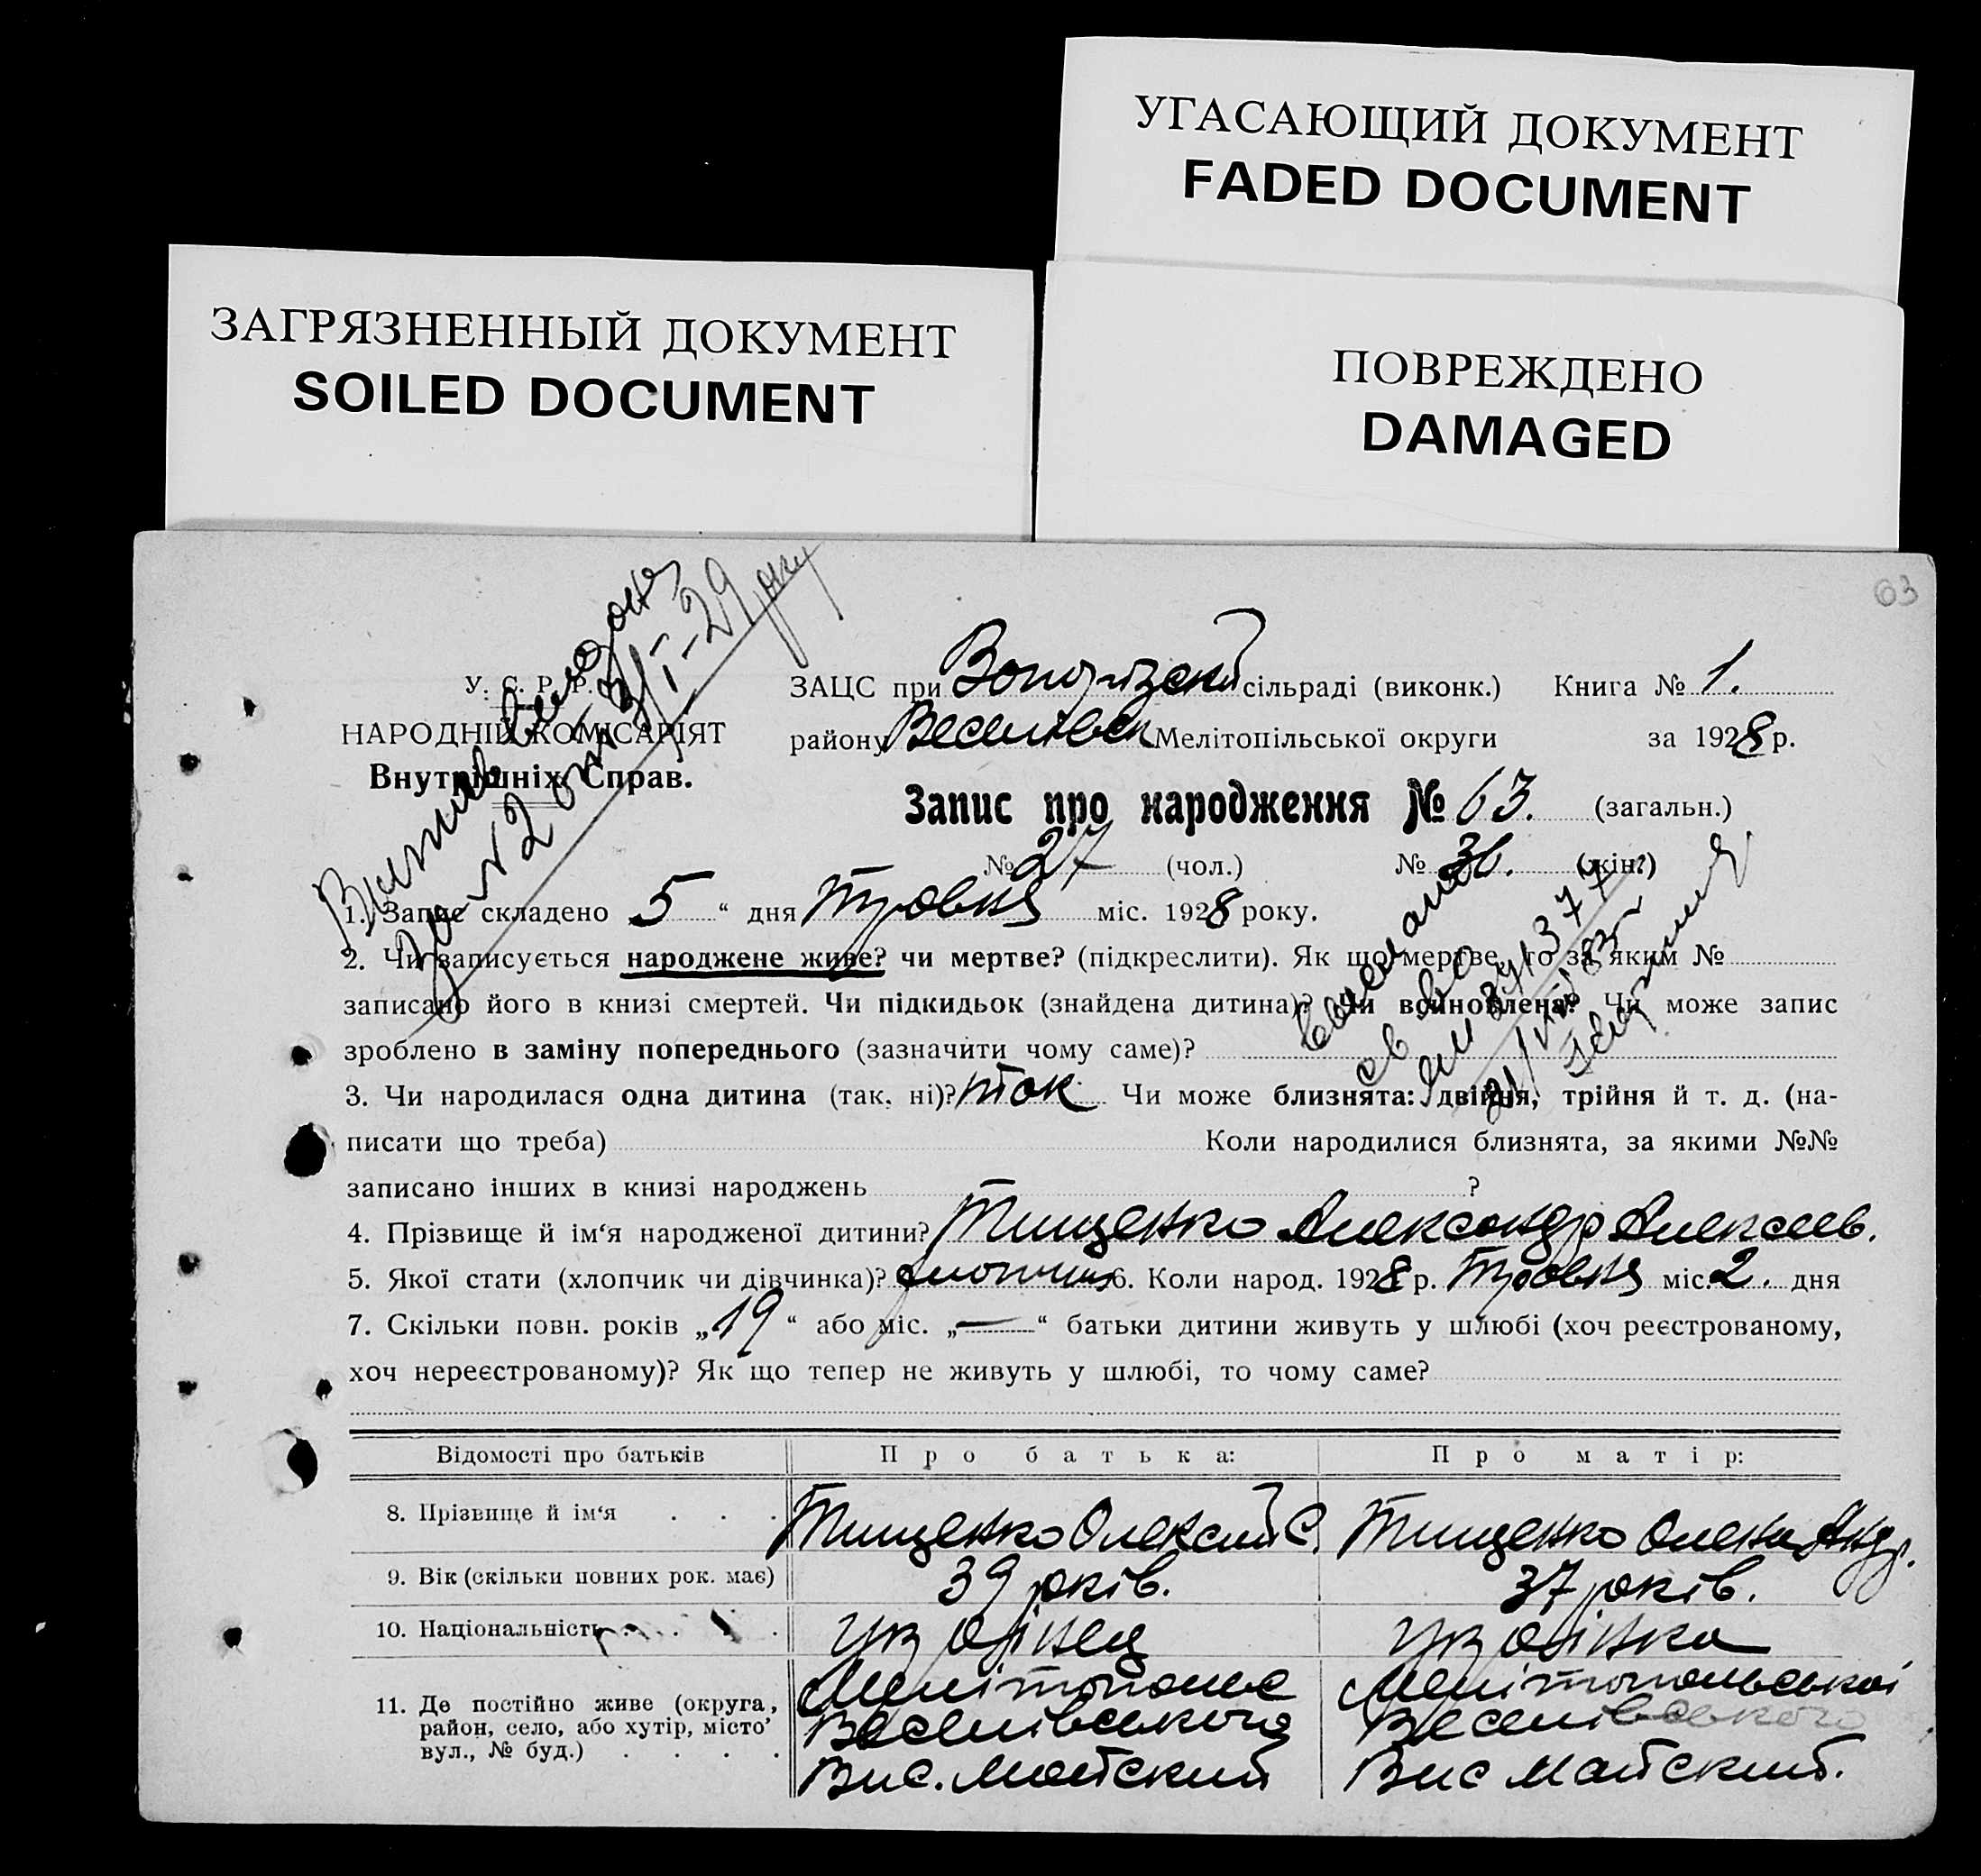 УГАСАЮЩИЙ ДОКУМЕНТ
FADED DOCUMENT
ЗАГРЯЗНЕННЫЙ ДОКУМЕНТ
SOILED DOCUMENT
ПОВРЕЖДЕНО
DAMAGED
63
У. С. Р. Р.
НАРОДНІЙ КОМІСАРІЯТ
Внутрішніх Справ.
за № 2 от 3/I-29 року
ЗАЦС при сільраді (виконк.) Книга № 1.
району Веселівськ Мелітопільської округи за 1928 р.
Запис про народження № 63. (загальн.)
№ 27 (чол.) № 36. (жін.)
1. Запис складено 5 “ дня Травня міс. 1928 року.
2. Чи записується народжене живе? чи мертве? (підкреслити). Як що мертве, то за яким №
записано його в книзі смертей. Чи підкидьок (знайдена дитина)? Чи войновлена? Чи може запис
зроблено в заміну попереднього (зазначити чому саме)?
3. Чи народилася одна дитина (так, ні)? так Чи може близнята: двійня, трійня й т. д. (на-
писати що треба) Коли народилися близнята, за якими №№
записано інших в книзі народжень ?
4. Прізвище й ім‘я народженої дитини? Тищенко Александр Алексеев.
5. Якої стати (хлопчик чи дівчинка)? хлопчик 6. Коли народ. 1928 р. Травня міс. 2. дня
7. Скільки повн. років „19“ або міс. „—“ батьки дитини живуть у шлюбі (хоч реєстрованому,
хоч нереєстрованому)? Як що тепер не живуть у шлюбі, то чому саме?
Відомості про батьків Про батька: Про матір:
8. Прізвище й ім‘я . . . Тищенко Олексий С. Тищенко Олена Андр.
9. Вік (скільки повних рок. має) 39 років. 37 років.
10. Національність . . . Українец Українка
11. Де постійно живе (округа, район, село, або хутір, місто’ вул., № буд.) . . . .
Мелітопольс Мелітопольської
Веселівського Веселівського
Вис. Майский Вис Майский.